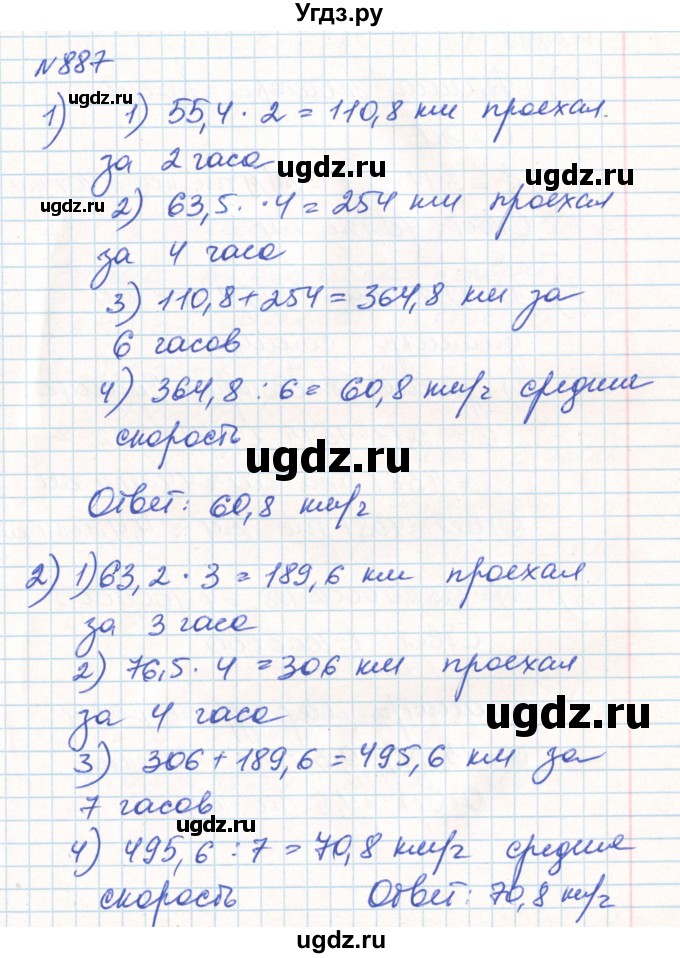 Угдз.ру
№887
ugdz.ru
1) 1) 55,4 · 2 = 110,8 км проехал.
за 2 часа
ugdz.ru
ugdz.ru 2) 63,5 · · 4 = 254 км проехал
за 4 часа
ugdz.ru
3) 110,8 + 254 = 364,8 км за
6 часов
4) 364,8 : 6 = 60,8 км/ч средняя
скорость
ugdz.ru
Ответ: 60,8 км/ч
2) 1) 63,2 · 3 = 189,6 км проехал
за 3 часа
2) 76,5 · 4 = 306 км проехал
за 4 часа
ugdz.ru
3) 306 + 189,6 = 495,6 км за
7 часов
ugdz.ru
4) 495,6 : 7 = 70,8 км/ч средняя
скорость Ответ: 70,8 км/ч
ugdz.ru